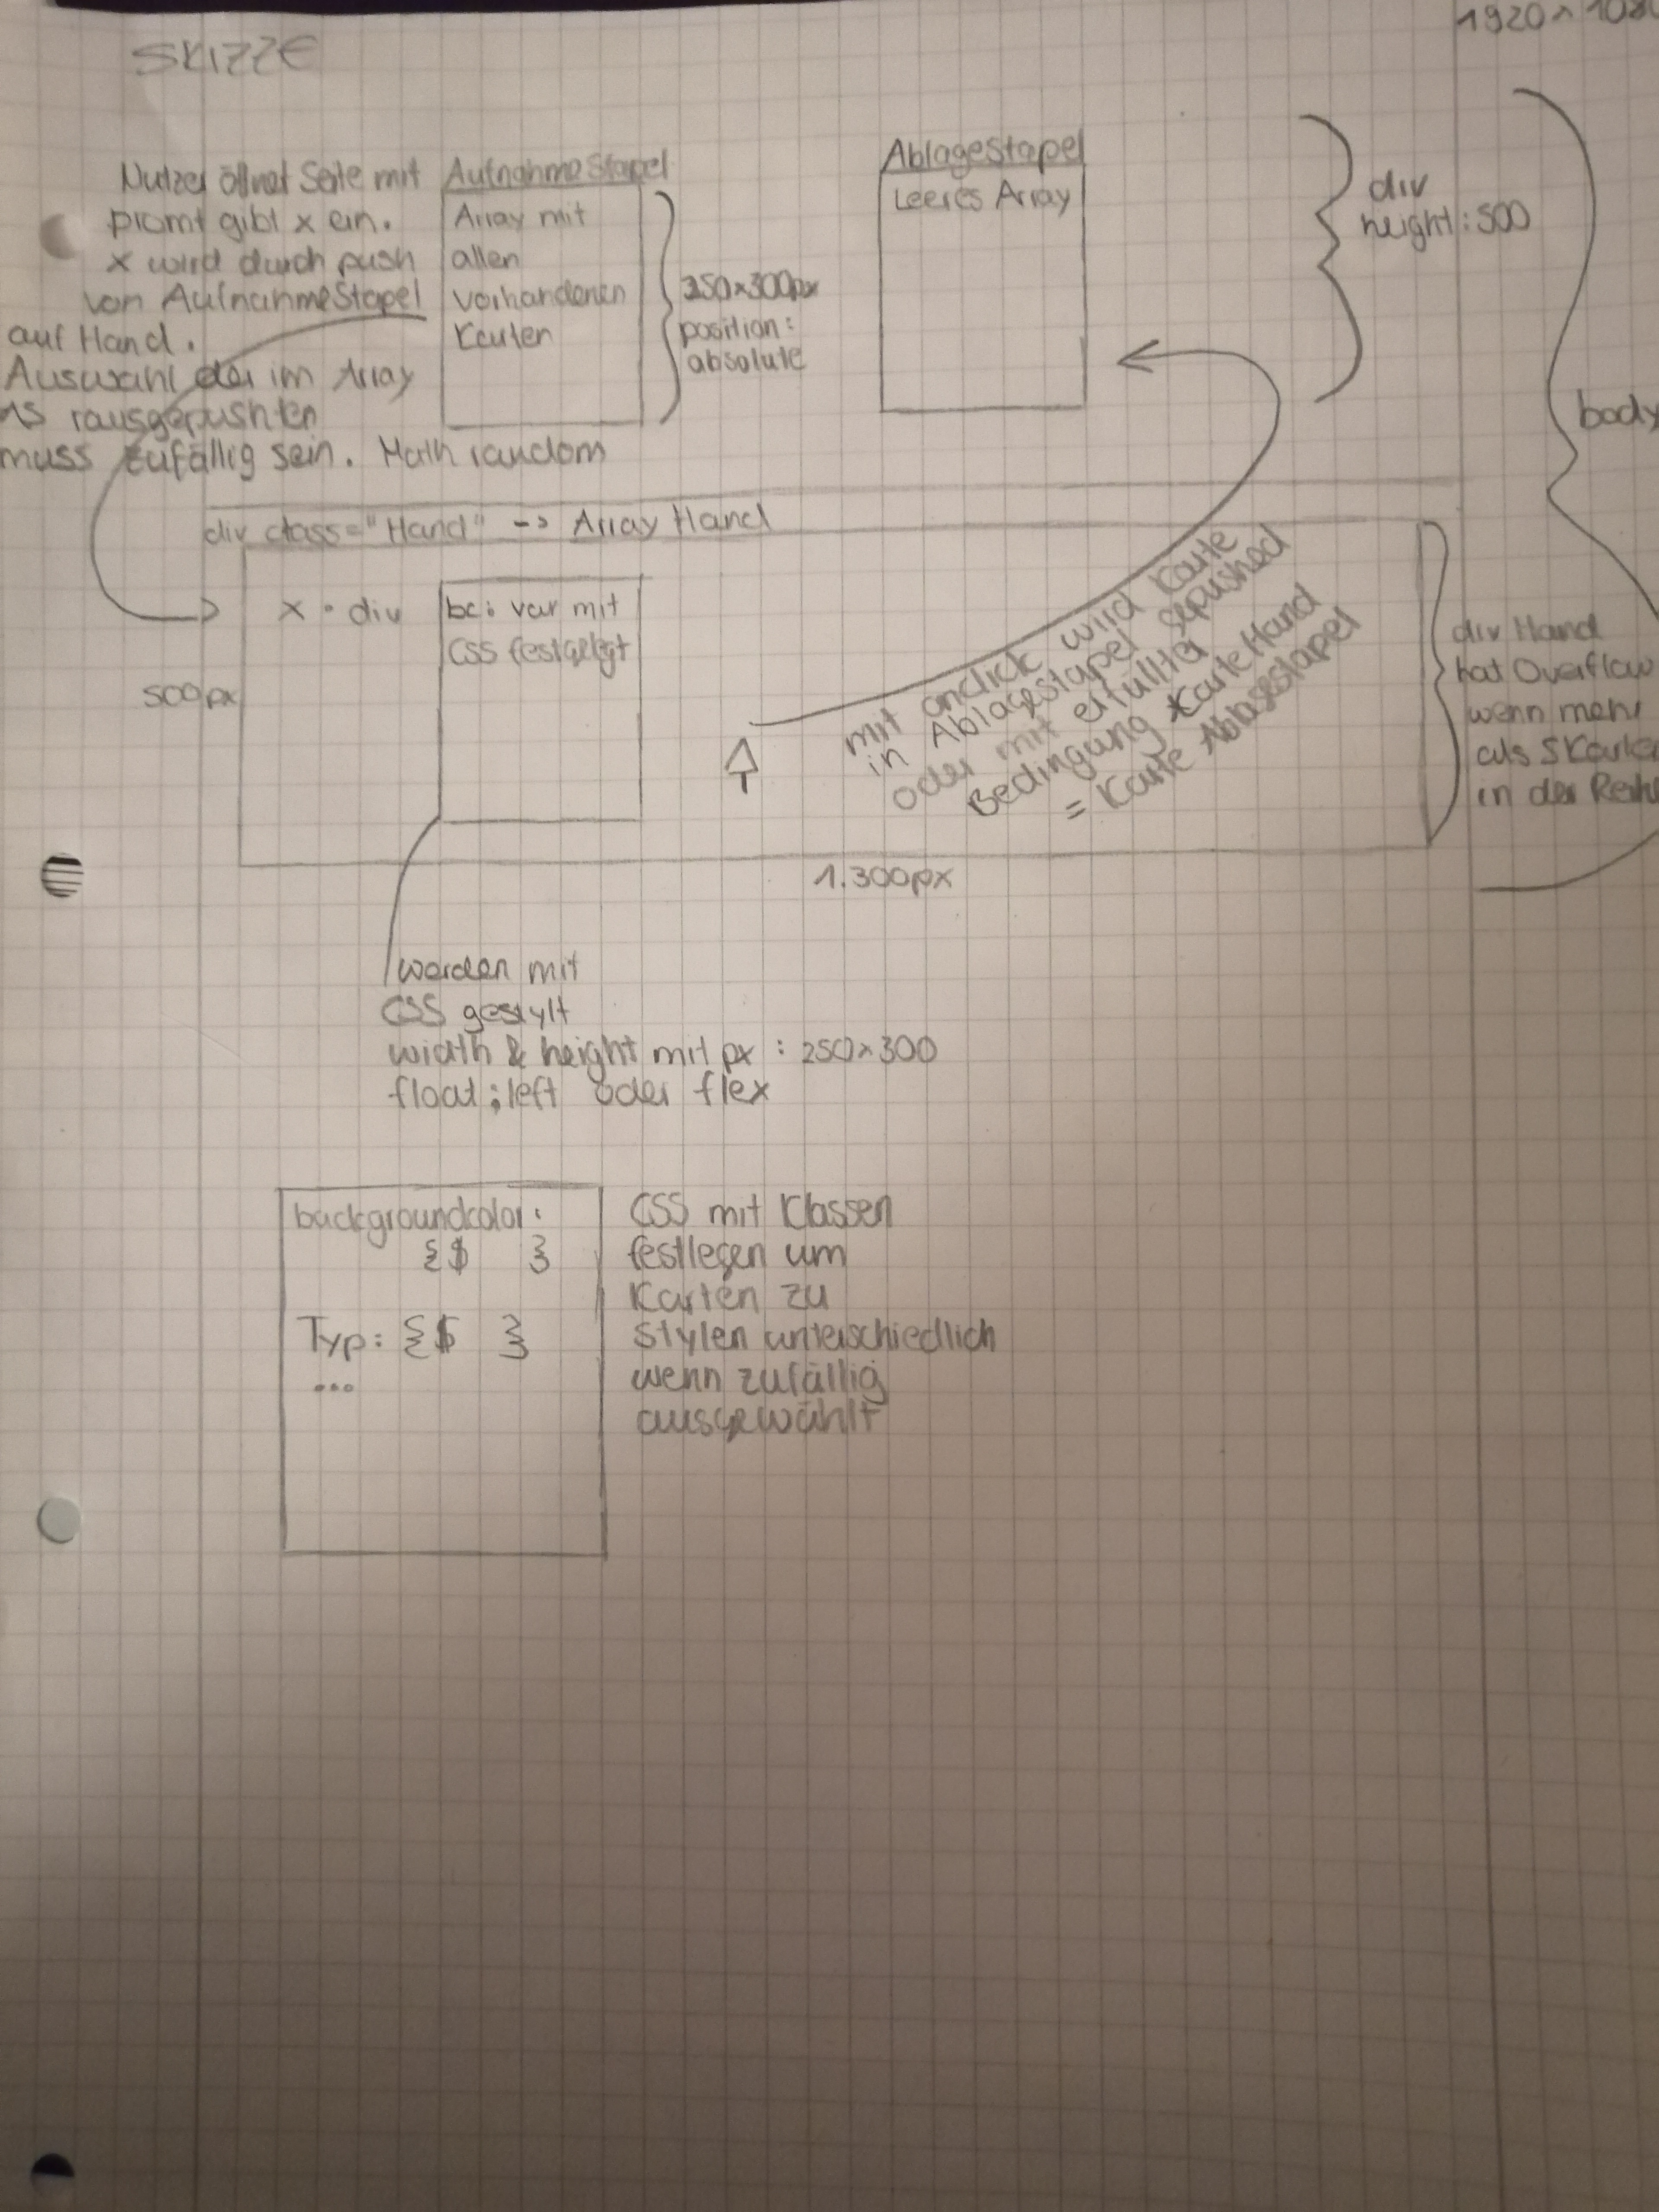 SKIZZE
Nutzer öffnet Seite mit
promt gibt x ein.
x wird durch push
von AufnahmeStapel
auf Hand.
Auswahl der im Array
rausgepushten
muss zufällig sein. Math random
AufnahmeStapel
Array mit
allen
vorhandenen
Karten
250×300px
position:
absolute
Ablagestapel
Leeres Array
div
height: 500
body
div class="Hand" -> Array Hand
x · div
bc: var mit
CSS festgelegt
500px
mit onclick wird Karte
in Ablagestapel gepushed
oder mit erfüllter
Bedingung Karte Hand
= Karte Ablagestapel
div Hand
hat Overflow
wenn mehr
als 5 Karten
in der
1.300px
werden mit
CSS gestylt
width & height mit px : 250×300
float: left oder flex
backgroundcolor:
{$ }
Typ: {$ }
...
CSS mit Klassen
festlegen um
Karten zu
stylen unterschiedlich
wenn zufällig
ausgewählt